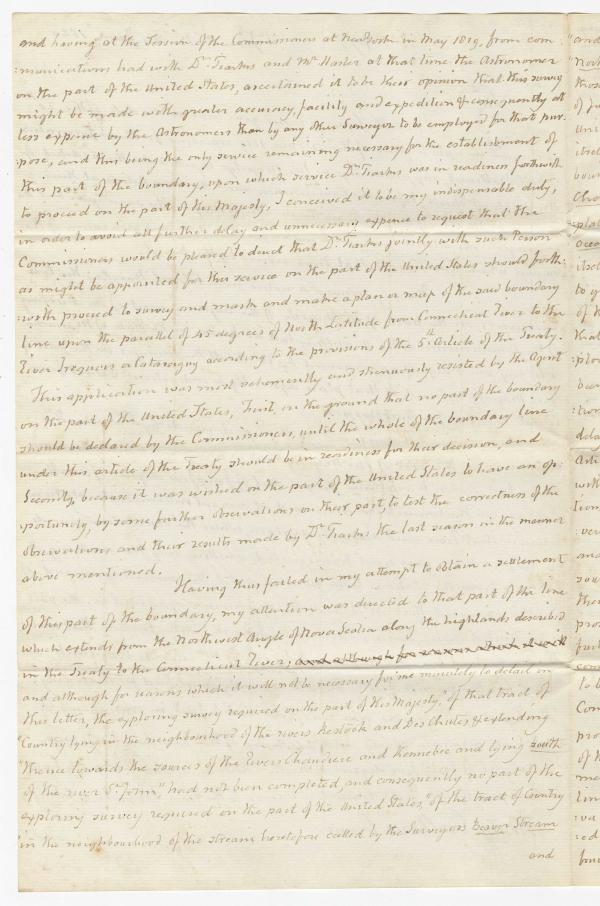 and having at the Session of the Commissioners at New York in May 1819, from com
:munications had with Dr. Tiarks and Mr. Hasler at that time the Astronomer
on the part of the United States, ascertained it to be their opinion that this survey
might be made with greater accuracy, facility and expedition & consequently at
less expence by the Astronomers than by any other Surveyor to be employed for that pur
:pose, and this being the only service remaining necessary for the establishment of
this part of the boundary, upon which service Dr. Tiarks was in readiness forthwith
to proceed on the part of His Majesty, I conceived it to be my indispensable duty,
in order to avoid all further delay and unnecessary expence to request that the
Commissioners would be pleased to direct that Dr. Tiarks jointly with such Person
as might be appointed for this service on the part of the United States should forth:
:with proceed to survey and mark and make a plan or map of the said boundary
line upon the parallel of 45 degrees of North Latitude from Connecticut River to the
River Iroquois or Cataraguy according to the provisions of the 5th. Article of the Treaty.
This application was most vehemently and strenuously resisted by the Agent
on the part of the United States, First, on the ground that no part of the boundary
should be declared by the Commissioners, until the whole of the boundary line
under this article of the Treaty should be in readiness for their decision, and
Secondly, because it was wished on the part of the United States to have an op:
:portunity, by some further observations on their part, to test the correctness of the
observations and their results made by Dr. Tiarks the last season in the manner
above mentioned.
Having thus failed in my attempt to obtain a settlement
of this part of the boundary, my attention was directed to that part of the line
which extends from the Northwest Angle of Nova Scotia along the highlands described
in the Treaty to the Connecticut River, and although for reasons which it will
and although for reasons which it will not be necessary for me minutely to detail in
this letter, the exploring survey required on the part of His Majesty, "of that tract of
"Country lying in the neighbourhood of the rivers Restook and Des Chutes & extending
"thence towards the sources of the Rivers Chaudiere and Kennebec and lying south
of the river St. John" had not been completed, and consequently no part of the
exploring survey required on the part of the United States, "of the tract of Country
"in the neighbourhood of the stream heretofore called by the Surveyors Beaver Stream
and